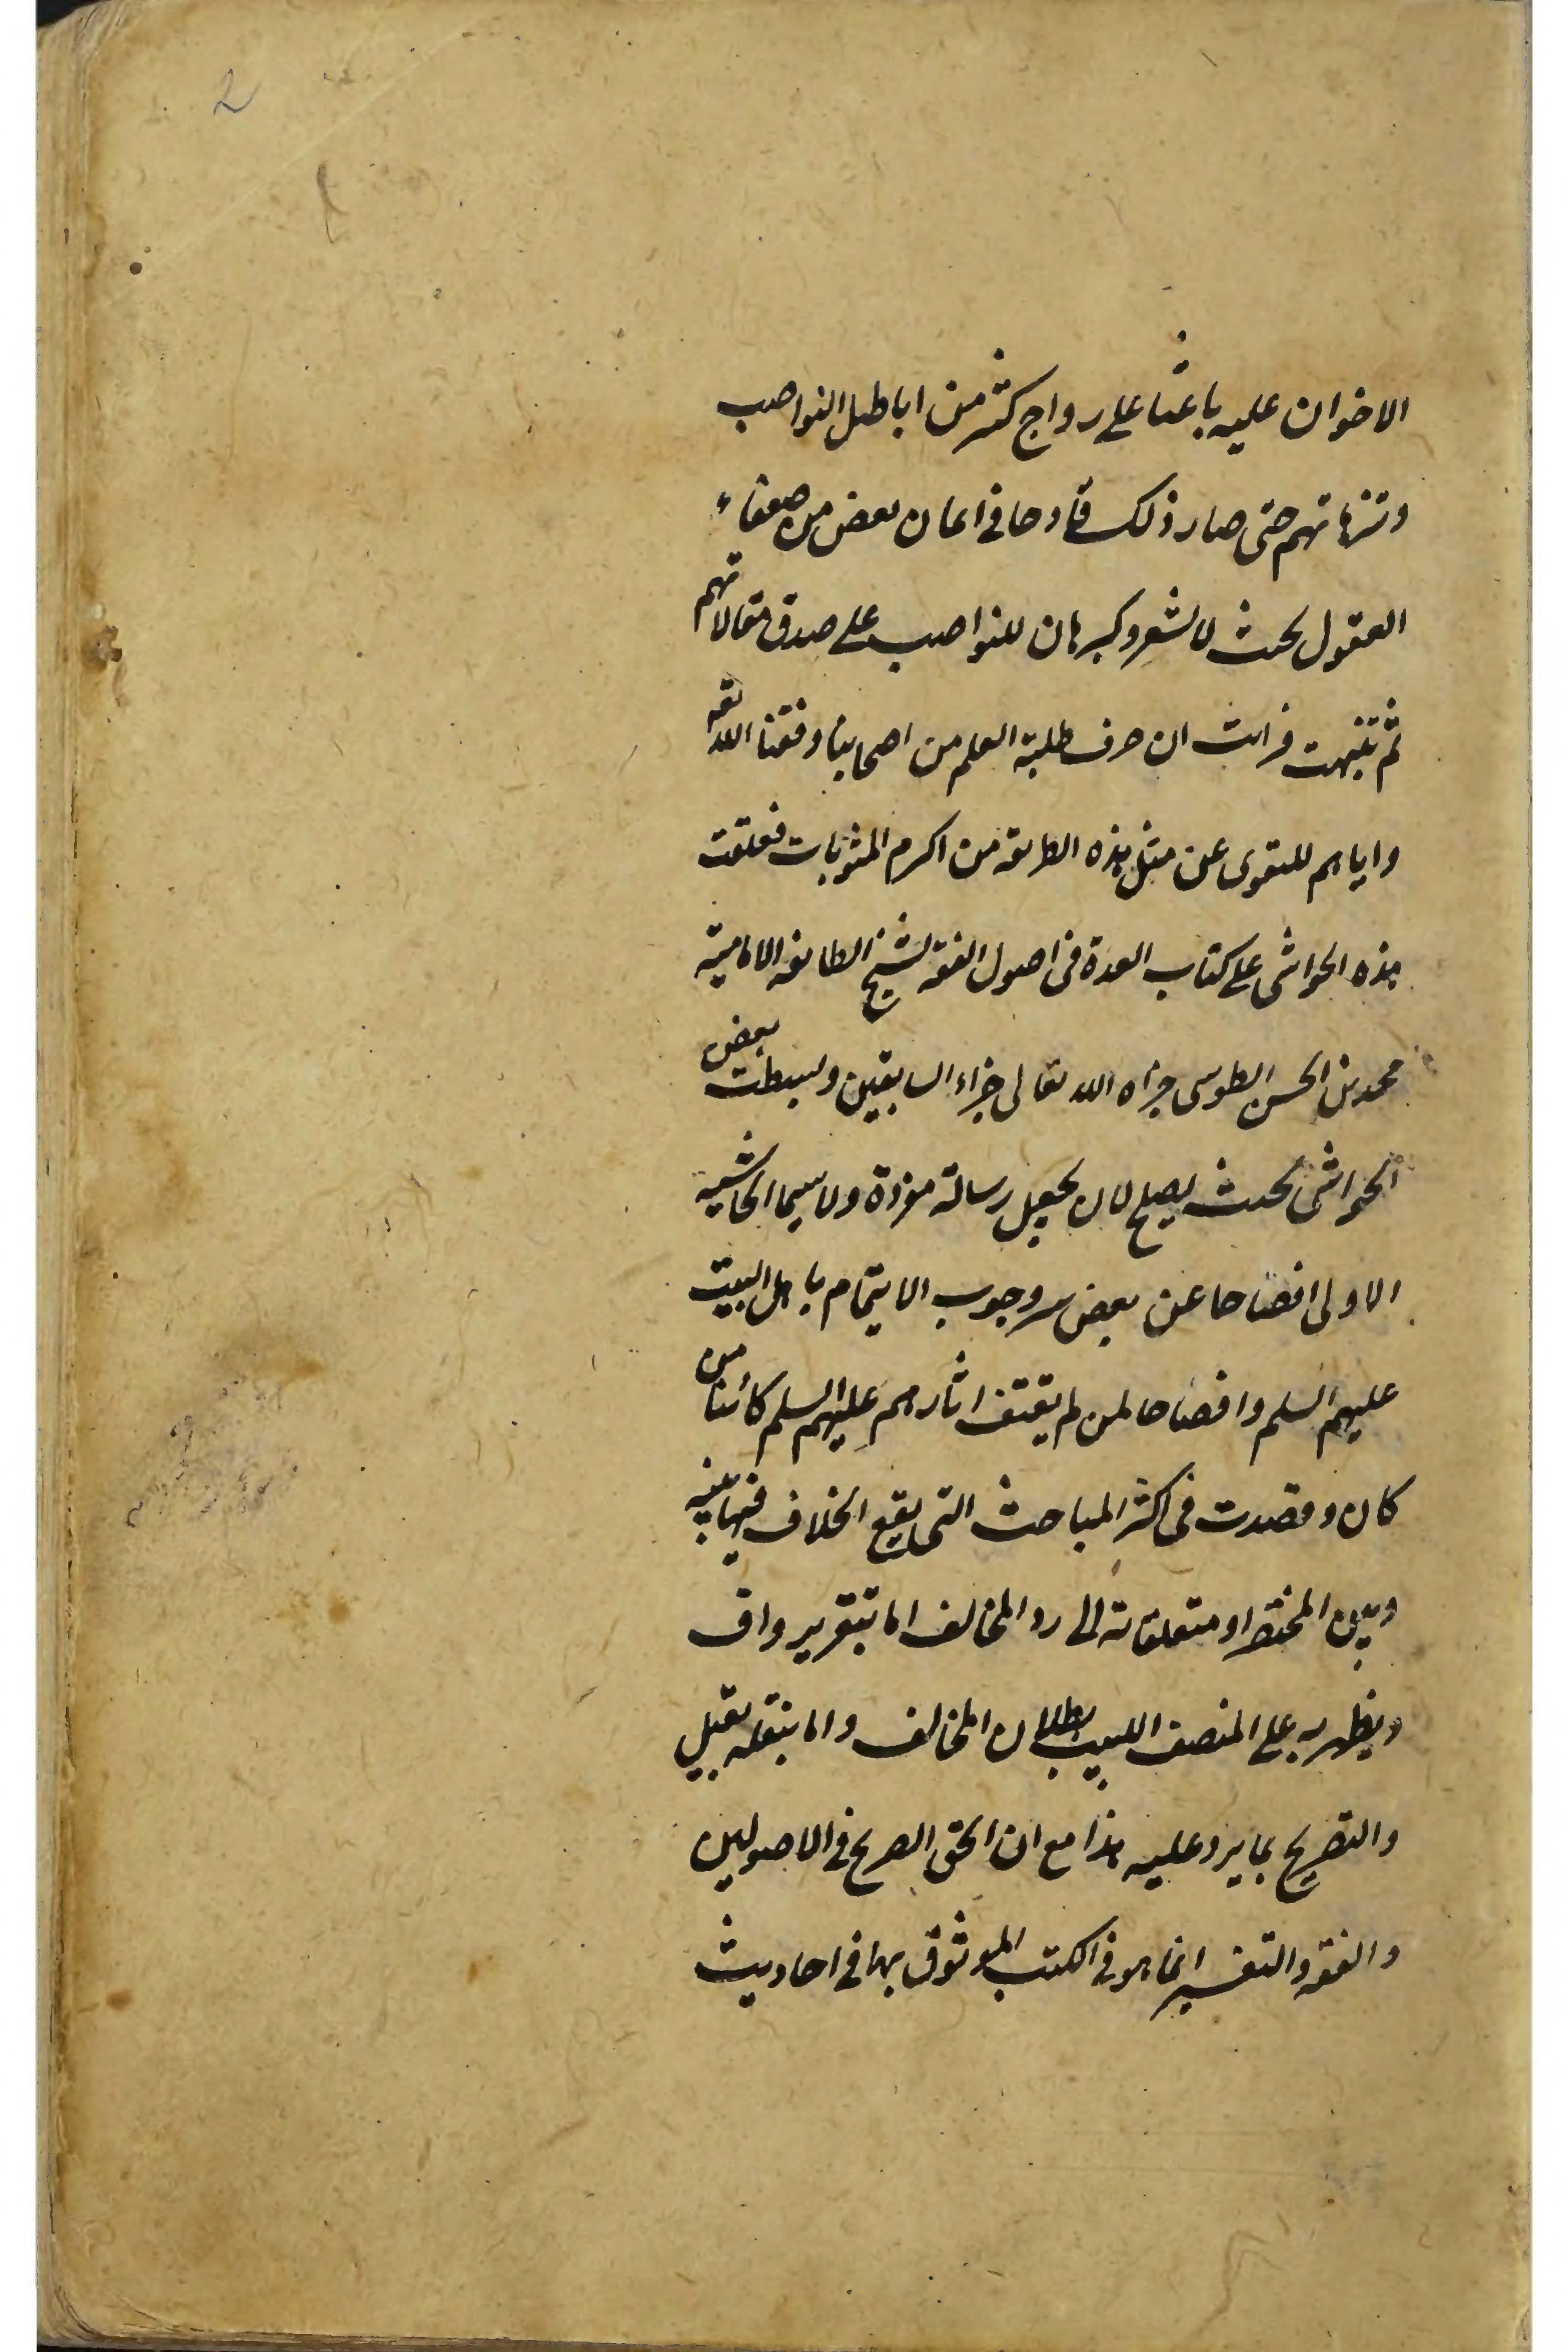 2
الاخوان عليه باعثا على رواج كثير من اباطيل النواصب
وترهاتهم حتى صار ذلك قادحا في ايمان بعض من ضعفاء
العقول بحيث لا يشعر وكبرهان للنواصب على صدق مقالاتهم
ثم تنبهت فرايت ان صرف طلبة العلم من اصحابنا وفقنا الله تعه
واياهم للتقوى عن مثل هذه الطريقة من اكرم المثوبات فعلقت
هذه الحواشي على كتاب العدة في اصول الفقه لشيخ الطائفة الامامية
محمد بن الحسن الطوسي جزاه الله تعالى جزاء السابقين وبسطت بعض
الحواشي بحيث يصلح لان يجعل رسالة مفردة ولا سيما الحاشية
الاولى افصاحا عن بعض سر وجوب الايتمام باهل البيت
عليهم السلم وافضاحا لمن لم يقتف اثارهم عليهم السلم كائنا من
كان وقصدت في اكثر المباحث التي يقع الخلاف فيها بينه
وبين المختصر او متعلقاته الى رد المخالف اما بتقرير واف
ويظهر به على المنصف اللبيب بطلان المخالف واما بنقله بقيل
والتصريح بما يرد عليه هذا مع ان الحق الصريح في الاصولين
والفقه والتفسير انما هو في الكتب الموثوق بها في احاديث